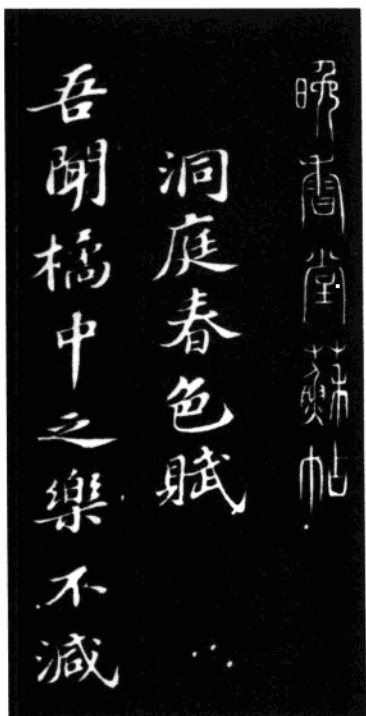 晚香堂蘇帖
洞庭春色賦
吾聞橘中之樂不減